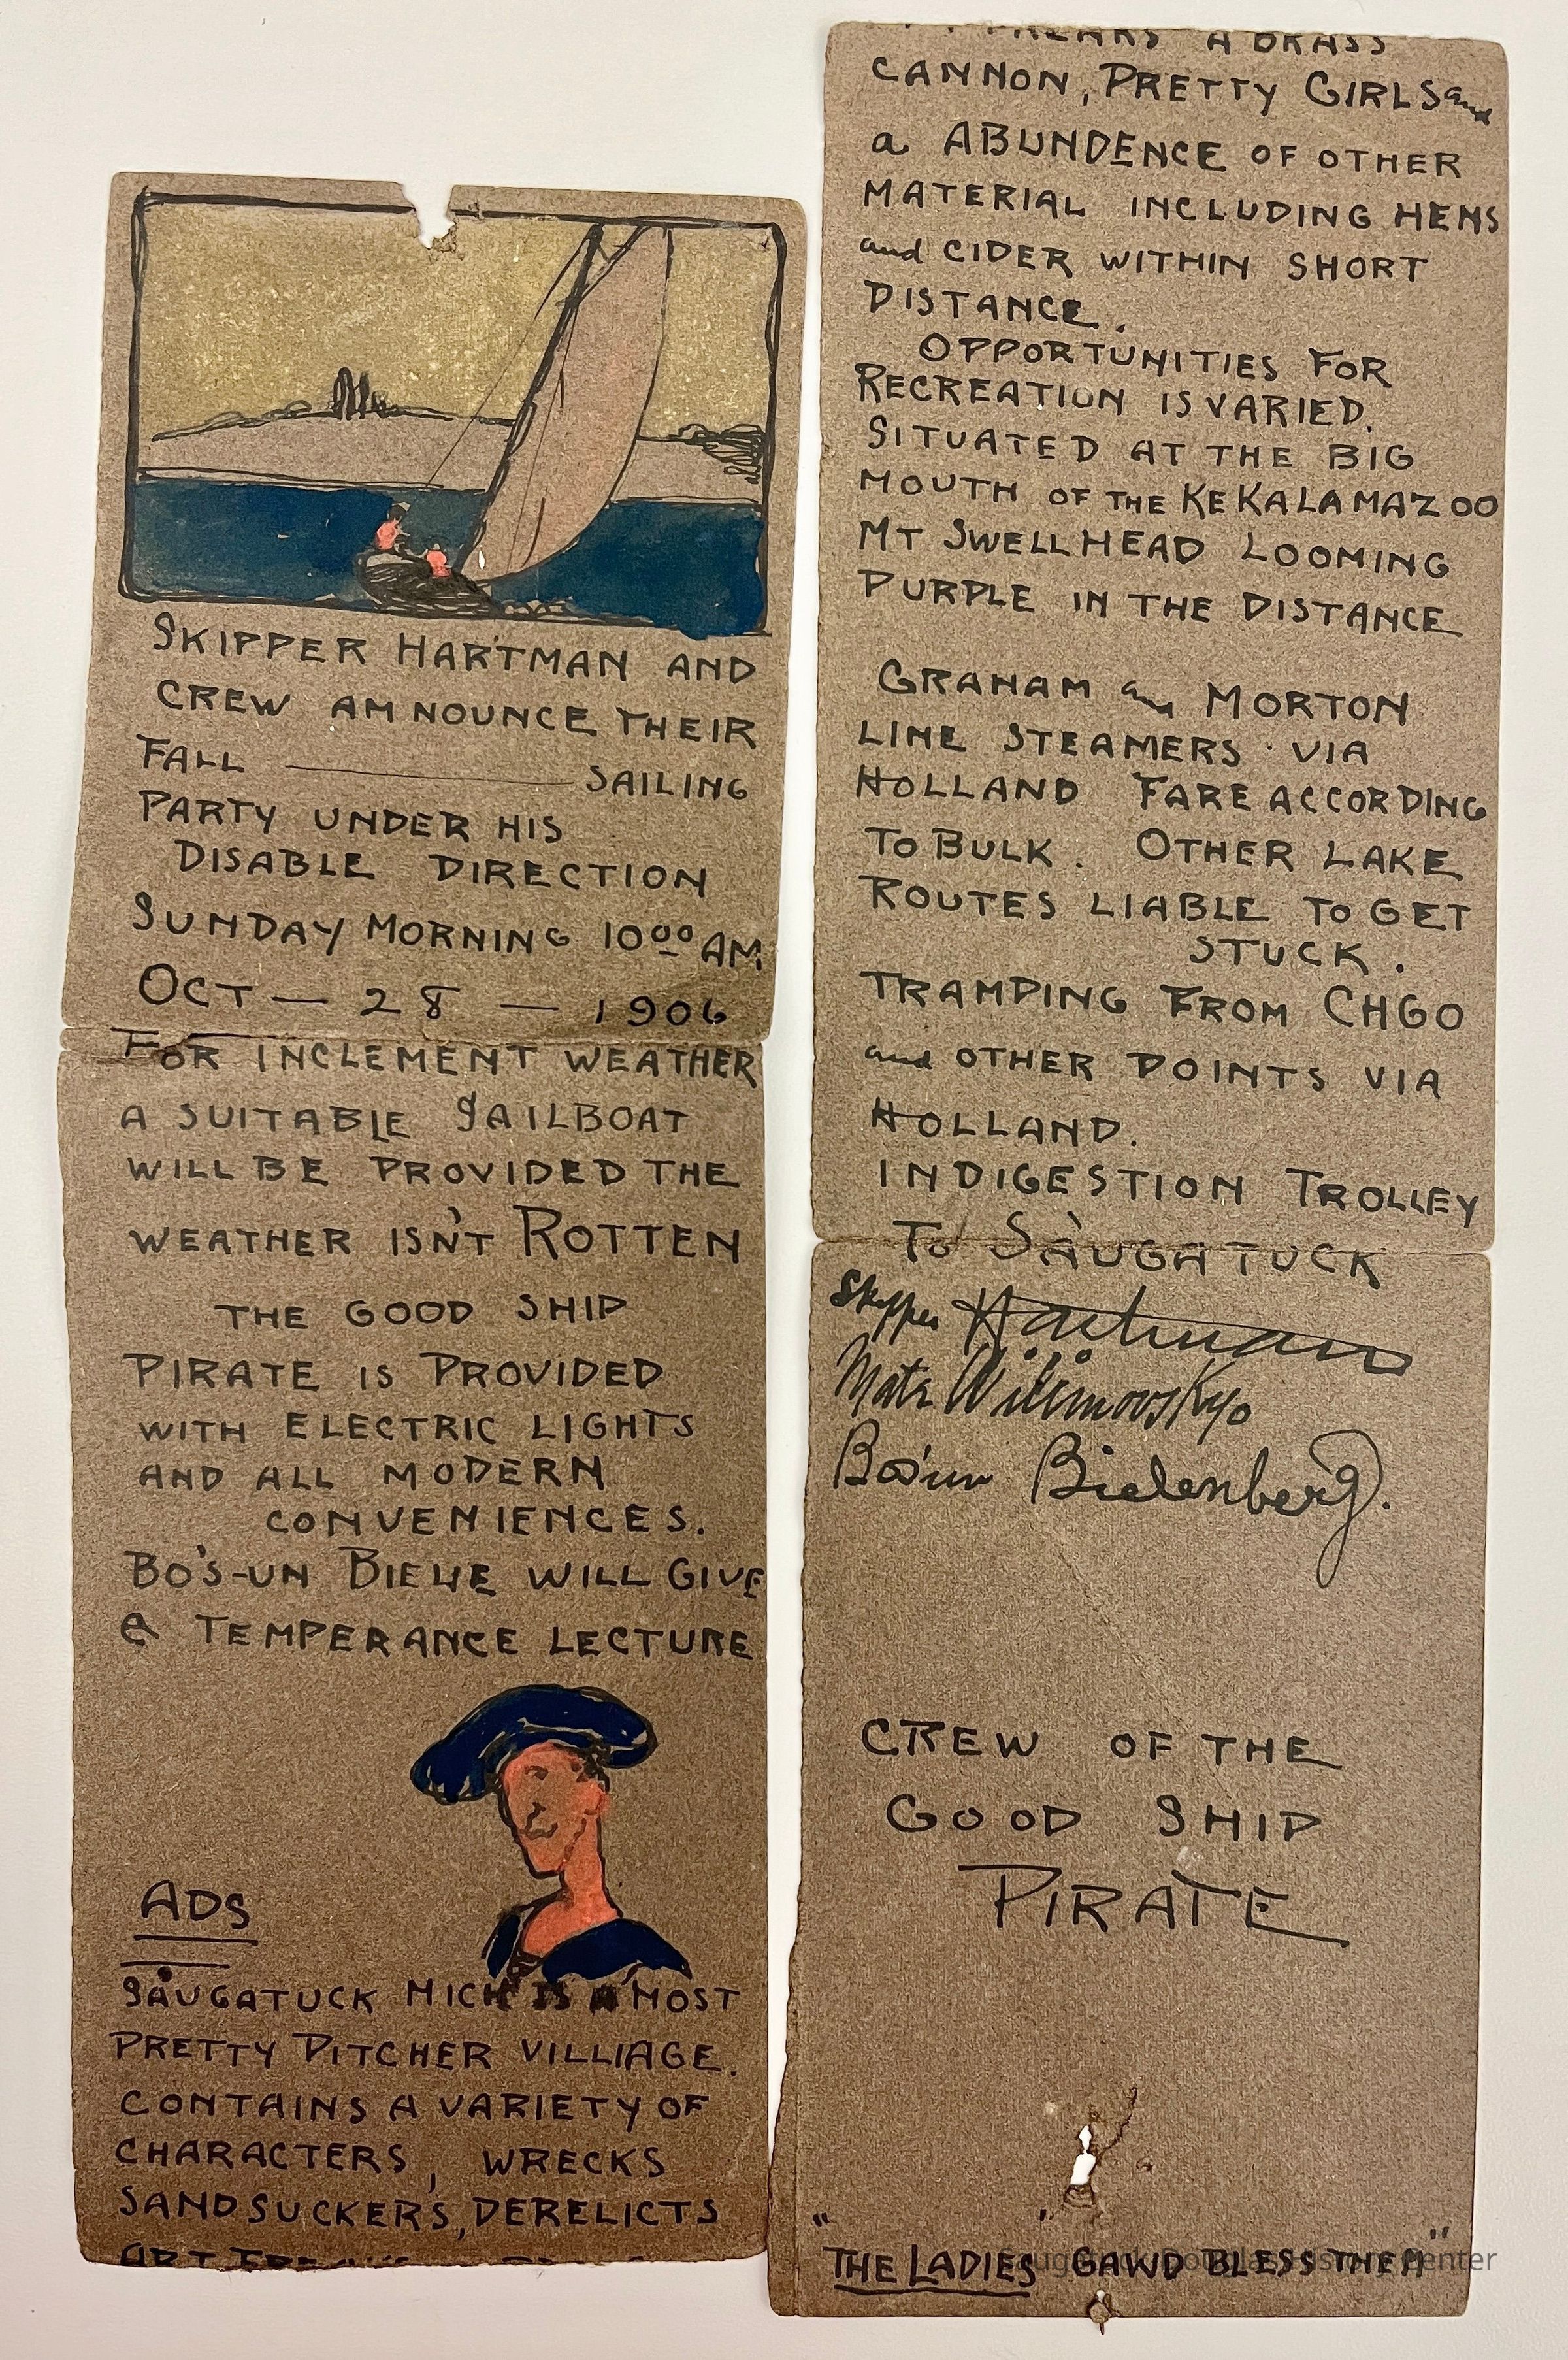 SKIPPER HARTMAN AND
CREW ANNOUNCE THEIR
FALL ——— SAILING
PARTY UNDER HIS
DISABLE DIRECTION
SUNDAY MORNING 10⁰⁰ AM.
OCT — 28 — 1906
FOR INCLEMENT WEATHER
A SUITABLE SAILBOAT
WILL BE PROVIDED THE
WEATHER ISN'T ROTTEN
THE GOOD SHIP
PIRATE IS PROVIDED
WITH ELECTRIC LIGHTS
AND ALL MODERN
CONVENIENCES.
BO'S-UN WILL GIVE
a TEMPERANCE LECTURE
ADS
SAUGATUCK MICH IS A MOST
PRETTY PITCHER VILLIAGE.
CONTAINS A VARIETY OF
CHARACTERS, WRECKS
SANDSUCKERS, DERELICTS
ART FREAKS A BRASS
CANNON, PRETTY GIRLS and
a ABUNDENCE OF OTHER
MATERIAL INCLUDING HENS
and CIDER WITHIN SHORT
DISTANCE.
OPPORTUNITIES FOR
RECREATION IS VARIED.
SITUATED AT THE BIG
MOUTH OF THE KEKALAMAZOO
MT SWELLHEAD LOOMING
PURPLE IN THE DISTANCE
GRAHAM and MORTON
LINE STEAMERS VIA
HOLLAND FARE ACCORDING
TO BULK. OTHER LAKE
ROUTES LIABLE TO GET
STUCK.
TRAMPING FROM CHGO
and OTHER POINTS VIA
HOLLAND.
INDIGESTION TROLLEY
TO SAUGATUCK
Skipper Hartman
Mate Wilimovsky
Bos'un Bielenberg.
CREW OF THE
GOOD SHIP
PIRATE
"THE LADIES" GAWD BLESS THEM"
Saugatuck-Douglas History Center